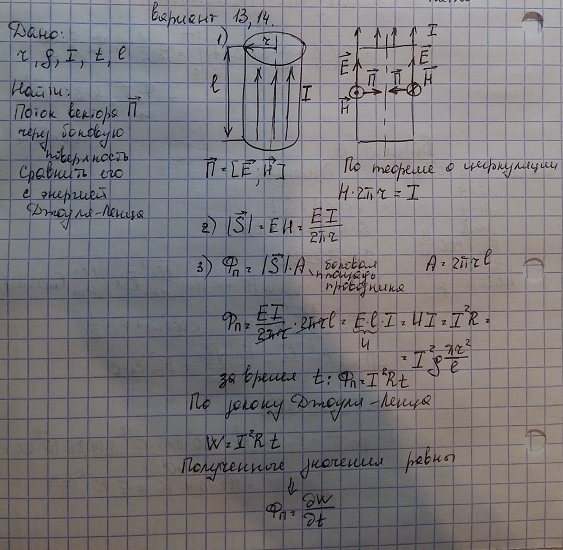 Вариант 13, 14.
Дано:
r, ρ, I, t, l
Найти:
Поток вектора П⃗
через боковую
поверхность
Сравнить его
с энергией
Джоуля-Ленца
1)
r
l
I
I
E⃗
E⃗
П⃗
П⃗
H⃗
H⃗
П⃗ = [E⃗, H⃗]
По теореме о циркуляции
H·2πr = I
2) |S⃗| = EH = EI/2πr
3) Фп = |S⃗|·A боковая площадь проводника
A = 2πrl
Фп = EI/2πr · 2πrl = E·l·I = UI = I²R =
U
= I²ρ πr²/l
за время t: Фп = I²Rt
По закону Джоуля-Ленца
W = I²Rt
Полученные значения равны
⇓
Фп = ∂W/∂t